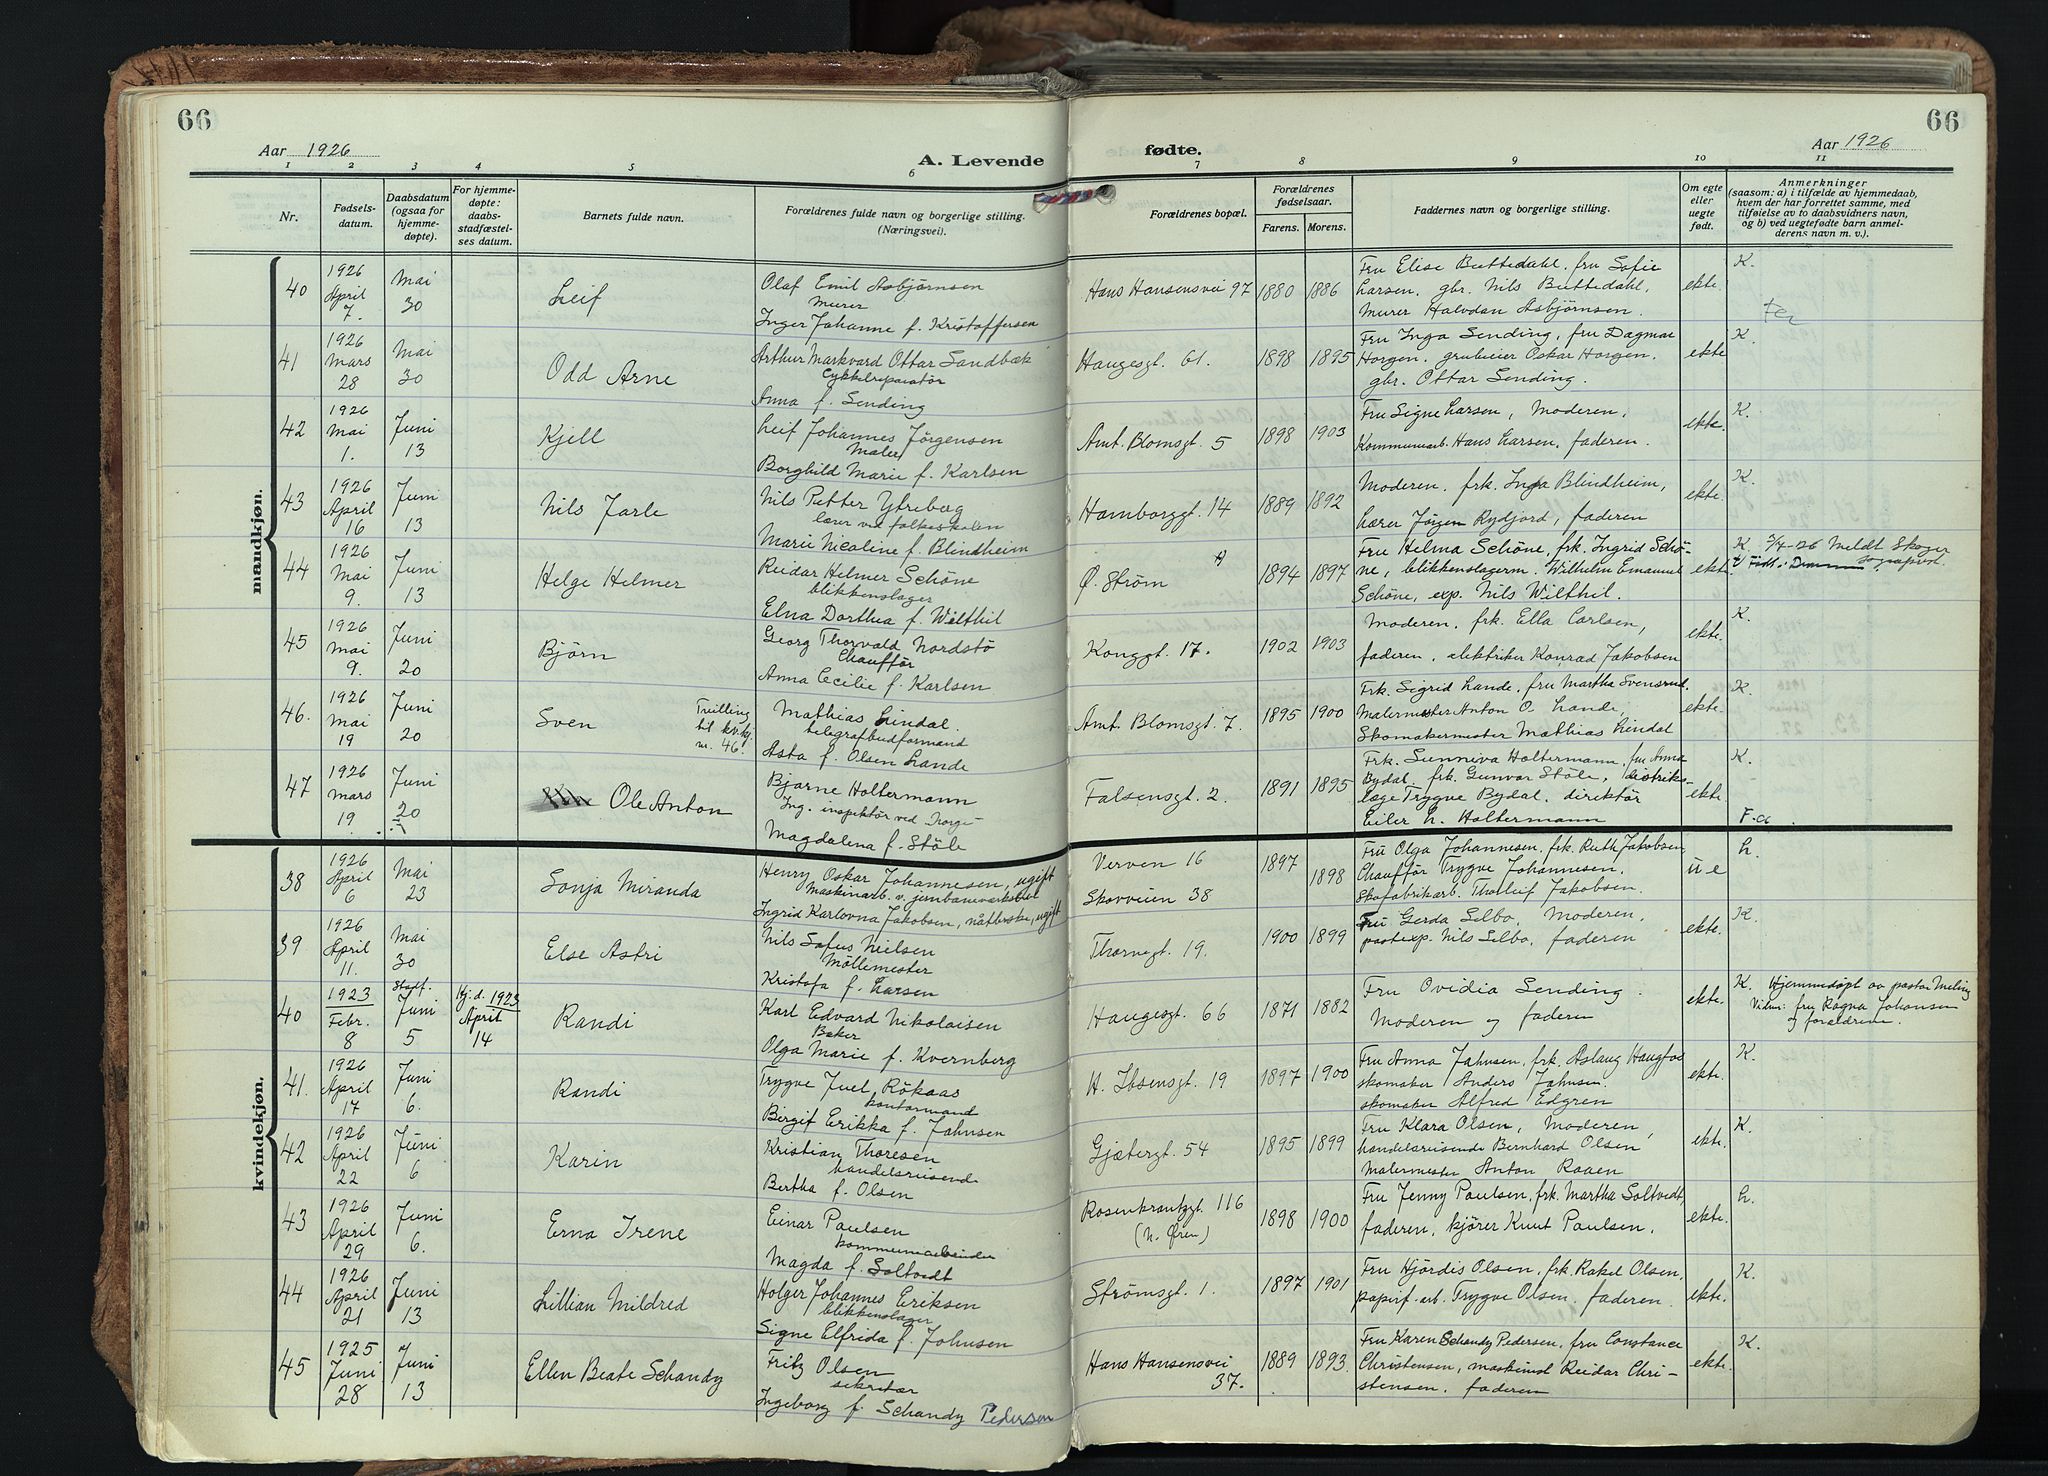 66
66
Aar 1926
A. Levende
fødte.
Aar 1926
1 2 3 4 5 6 7 8 9 10 11
Nr.
Fødsels-
datum.
Daabsdatum
(ogsaa for
hjemme-
døpte).
For hjemme-
døpte:
daabs-
stadfæstel-
ses datum.
Barnets fulde navn.
Forældrenes fulde navn og borgerlige stilling.
(Næringsvei).
Forældrenes bopæl.
Forældrenes
fødselsaar.
Farens. Morens.
Faddernes navn og borgerlige stilling.
Om egte
eller
uegte
født.
Anmerkninger
(saasom: a) i tilfælde av hjemmedaab,
hvem der har forrettet samme, med
tilføielse av to daabsvidners navn,
og b) ved uegtefødte barn anmel-
derens navn m. v.).
mandkjøn.
40
1926
April
7.
Mai
30
Leif
Olaf Emil Asbjørnsen
Murer
Inger Johanne f. Kristoffersen
Hans Hansensvei 97
1880 1886
Fru Elise Buttedahl, fru Sofie
Larsen, gbr. Nils Buttedahl,
Murer Halvdan Asbjørnsen.
ekte
K.
41
1926
Mars
28
Mai
30
Odd Arne
Arthur Markvard Ottar Sandbæk
Cykkelreparatør
Anna f. Sending
Haugesgt. 61.
1898 1895
Fru Inga Sending, fru Dagmar
Horgen, grubeier Oskar Horgen.
gbr. Ottar Sending.
ekte
K.
42
1926
Mai
1.
Juni
13
Kjell
Leif Johannes Jørgensen
Maler
Borghild Marie f. Karlsen
Amt. Blomsgt. 5
1898 1903
Fru Signe Larsen, Moderen,
Kommunearb. Hans Larsen, faderen.
ekte.
K.
43
1926
April
16
Juni
13
Nils Jarle
Nils Petter Ytrebøg
lærer ved folkeskolen
Marie Nicoline f. Blindheim
Hamborggt. 14
1889 1892
Moderen, frk. Inga Blindheim,
Lærer Jørgen Rydjord, faderen
ekte.
K.
44
1926
Mai
9.
Juni
13
Helge Helmer
Reidar Helmer Schöne
blikkenslager
Elna Dorthea f. Wilthil
Ø. Strøm
1894 1897
Fru Helma Schöne, frk. Ingrid Schö-
ne, blikkenslagerm. Wilhelm Emanuel
Schöne, exp. Nils Wilthil.
ekte.
K. 5/7-26 Meldt Skoger
sogneprest.
45
1926
Mai
9.
Juni
20
Bjørn
Georg Thorvald Nordstø
Chauffør
Anna Cecilie f. Karlsen
Konggt. 17.
1902 1903
Moderen, frk. Ella Carlsen,
faderen, elektriker Konrad Jakobsen
ekte.
K.
46.
1926
Mai
19
Juni
20
Sven
Tvilling
til kv.kj.
nr. 46!
Mathias Lindal.
telegrafbudformand
Asta f. Olsen Lande
Amt. Blomsgt. 7.
1895 1900
Frk. Sigrid Lande, fru Martha Svensrud,
Malermester Anton O. Lande,
Skomakermester Mathias Lindal
ekte.
K.
47
1926
Mars
19
Juni
20
Ole Anton
Bjarne Holtermann
Ing. inspektør ved Norge-
Magdalena f. Støle
Falsensgt. 2.
1891 1895
Frk. Sunniva Holtermann, fru Anna
Bydal, frk. Gunvar Støle, distrikts-
læge Trygve Bydal, direktør
Eiler H. Holtermann
ekte.
K.
F. a
kvindekjøn.
38
1926
April
6
Mai
23
Sonja Miranda
Henry Oskar Johannesen, ugift
Maskinarb. v. jernbaneverkstæd
Ingrid Karlovna Jakobsen, nåtlerske, ugift
Verven 16
Skovveien 38
1897
1898
Fru Olga Johannesen, frk. Ruth Jakobsen
Chauffør Trygve Johannesen,
Skofabrikarb. Thorleif Jakobsen.
u e
L.
39
1926
April
11.
Mai
30
Else Astri
Nils Sofus Nielsen
Møllemester
Kristofa f. Larsen
Thornegt. 19.
1900 1899
Fru Gerda Selbo, Moderen,
postexp. Nils Selbo, faderen
ekte.
K.
40
1923
Febr.
8
Stadf.
Juni
5
Hj. d. 1923
April
14
Randi
Karl Edvard Nikolaisen
Baker
Olga Marie f. Kvernberg
Haugesgt 66
1871 1882
Fru Ovidia Sending.
Moderen og faderen
ekte.
K. Hjemmedøpt av pastor Meling
Vidner: fru Ragna Johansen
og forældrene.
41.
1926
April
17
Juni
6.
Randi
Trygve Juel Rökaas
kontormand
Birgit Erikka f. Jahnsen
H. Ibsensgt. 19
1897 1900
Fru Anna Jahnsen, frk. Aslaug Haugfos
skomaker Anders Jahnsen.
skomaker Alfred Edgren
ekte.
K.
42
1926
April
22
Juni
6
Karin
Kristian Thoresen
handelsreisende
Bertha f. Olsen
Gjætergt. 54
1895 1899
Fru Klara Olsen, Moderen,
handelsreisende Bernhard Olsen
Malermester Anton Raaen
ekte.
K.
43
1926
April
29
Juni
6.
Erna Irene
Einar Paulsen
kommunearbeider
Magda f. Soltvedt
Rosenkrantzgt. 116
(N. Øren)
1898 1900
Fru Jenny Paulsen, frk. Martha Soltvedt,
faderen, kjører Knut Paulsen.
ekte.
L.
44
1926
April
21
Juni
13
Lillian Mildred
Holger Johannes Eriksen
blikkenslager
Signe Elfrida f. Johnsen
Strømsgt. 1.
1897 1901
Fru Hjørdis Olsen, frk. Rakel Olsen,
papirf. arb. Trygve Olsen, faderen.
ekte.
K.
45
1925
Juni
28
Juni
13
Ellen Beate Schandy
Fritz Olsen
sekretær
Ingeborg f. Schandy Pedersen
Hans Hansensvei
37.
1889 1893.
Fru Karen Schandy Pedersen, fru Constance
Christensen, maskinist Reidar Chri-
stensen, faderen
ekte.
K.